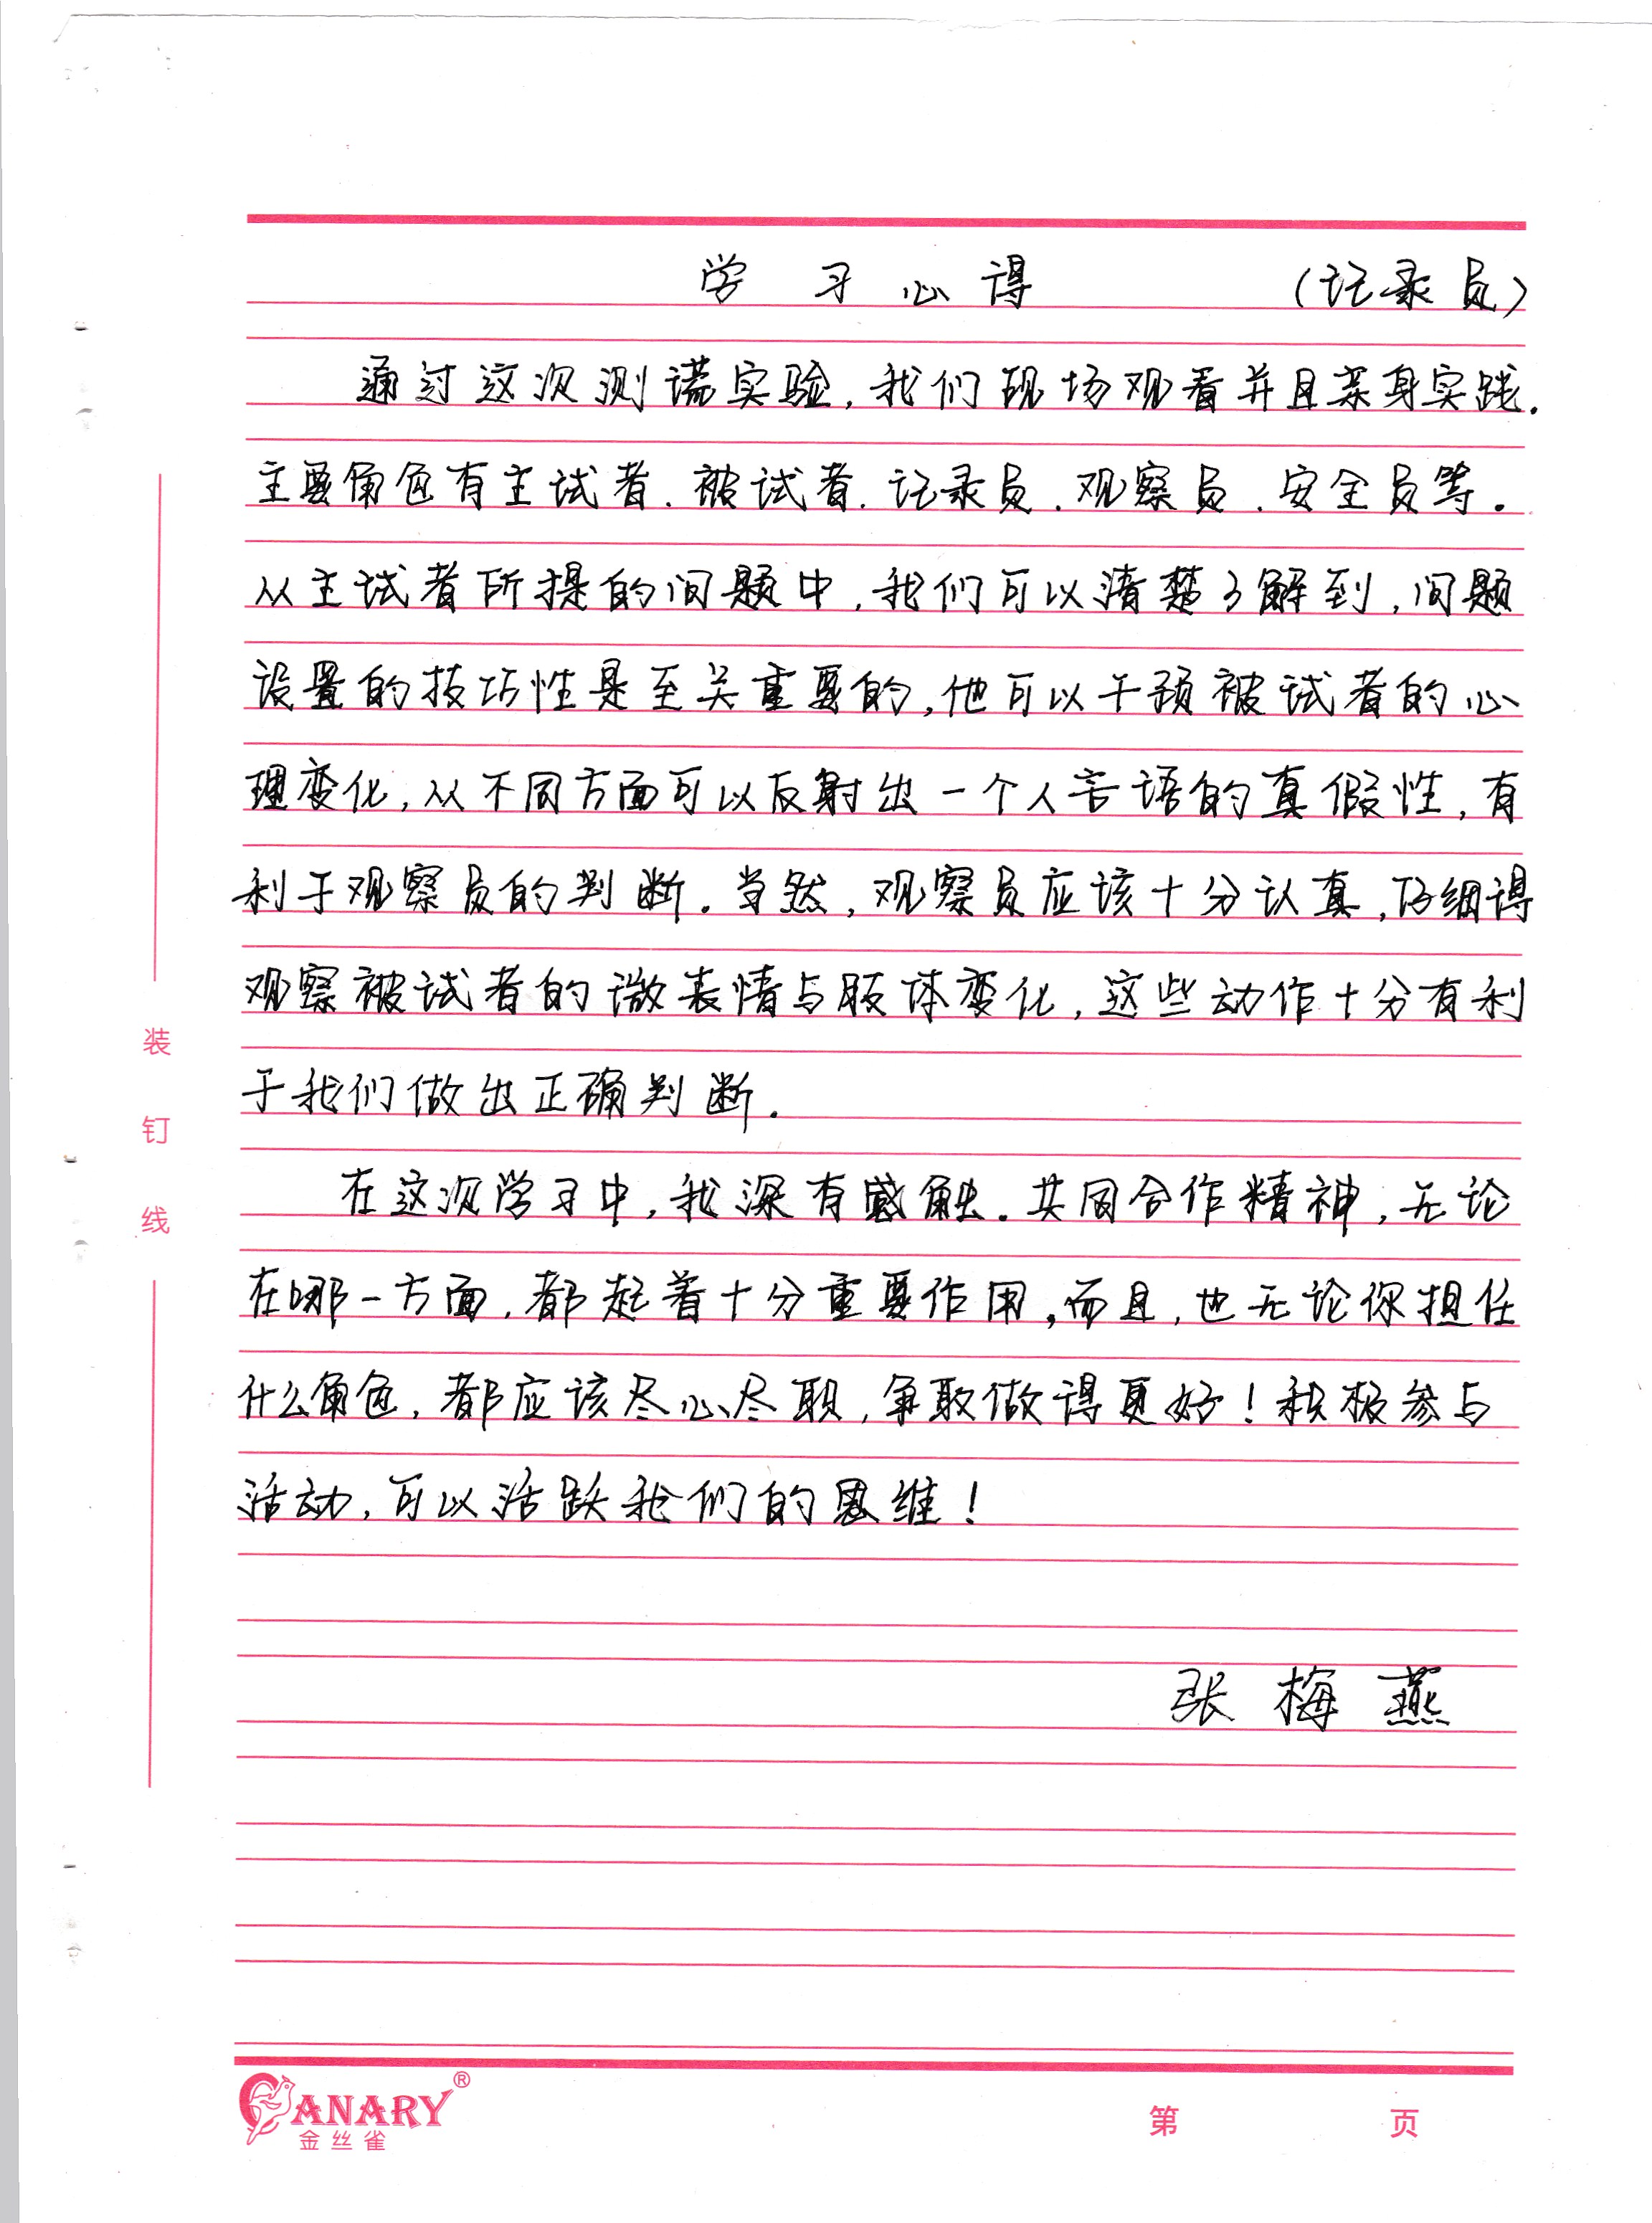 学习心得 （记录员）
通过这次测谎实验，我们现场观看并且亲身实践．
主要角色有主试者．被试者．记录员．观察员．安全员等．
从主试者所提的问题中，我们可以清楚了解到，问题
设置的技巧性是至关重要的，他可以干预被试者的心
理变化，从不同方面可以反射出一个人言语的真假性，有
利于观察员的判断．当然，观察员应该十分认真，仔细得
观察被试者的微表情与肢体变化，这些动作十分有利
于我们做出正确判断．
在这次学习中，我深有感触．共同合作精神，无论
在哪一方面，都起着十分重要作用，而且，也无论你担任
什么角色，都应该尽心尽职，争取做得更好！积极参与
活动，可以活跃我们的思维！
张梅燕
装
钉
线
CANARY®
金丝雀
第 页